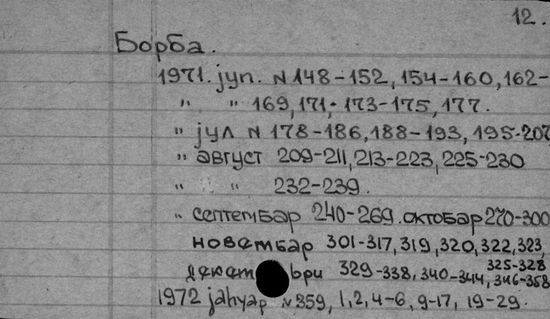 12.
Борба.
1971. јун. N 148-152, 154-160, 162-
" " 169, 171, 173-175, 177.
" јул N 178-186, 188-193, 195-207
" август 209-211, 213-223, 225-230
" " 232-239.
" септембар 240-269. октобар 270-300
новембар 301-317, 319, 320, 322, 323,
325-328
329-338, 340-344, 346-358
1972 јануар N 359, 1, 2, 4-6, 9-17, 19-29.